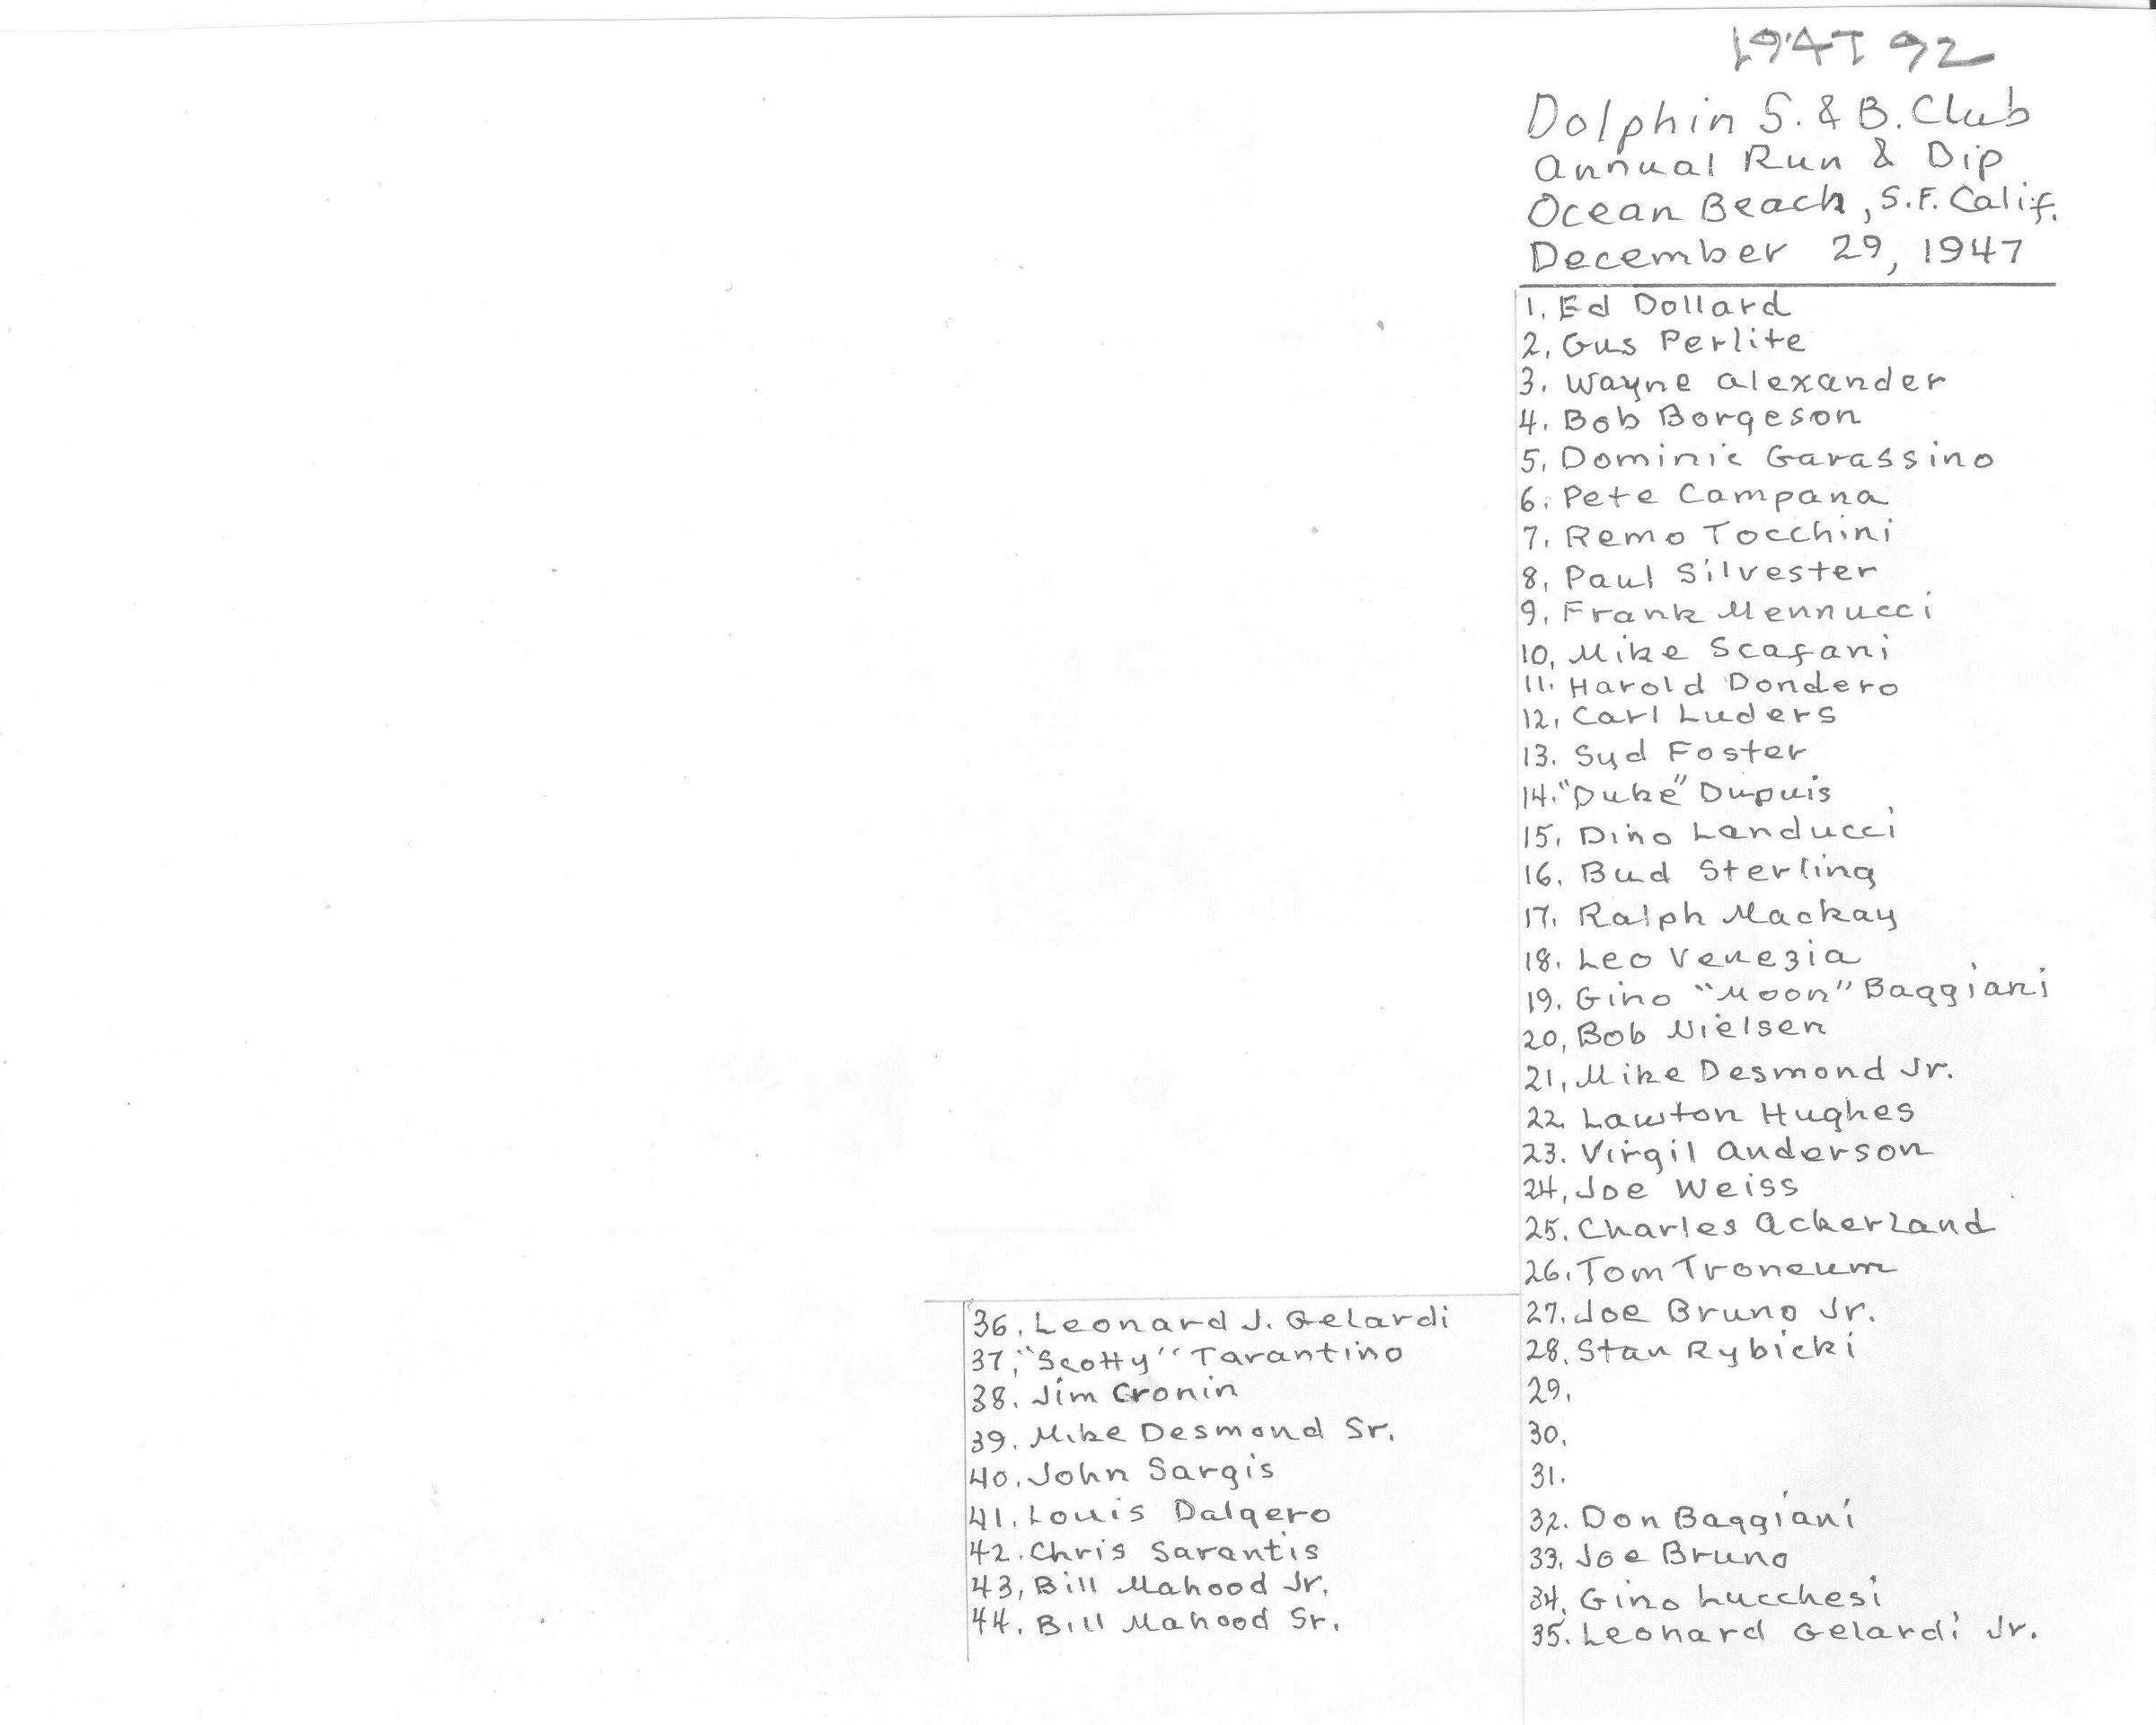 1947 92
Dolphin S. & B. Club
Annual Run & Dip
Ocean Beach, S.F. Calif.
December 29, 1947
1. Ed Dollard
2. Gus Perlite
3. Wayne Alexander
4. Bob Borgeson
5. Dominic Garassino
6. Pete Campana
7. Remo Tocchini
8. Paul Silvester
9. Frank Mennucci
10. Mike Scafani
11. Harold Dondero
12. Carl Luders
13. Syd Foster
14. "Duke" Dupuis
15. Dino Landucci
16. Bud Sterling
17. Ralph Mackay
18. Leo Venezia
19. Gino "Moon" Baggiani
20. Bob Nielsen
21. Mike Desmond Jr.
22. Lawton Hughes
23. Virgil Anderson
24. Joe Weiss
25. Charles Ackerland
26. Tom Troneum
27. Joe Bruno Jr.
28. Stan Rybicki
29.
30.
31.
32. Don Baggiani
33. Joe Bruno
34. Gino Lucchesi
35. Leonard Gelardi Jr.
36. Leonard J. Gelardi
37. "Scotty" Tarantino
38. Jim Cronin
39. Mike Desmond Sr.
40. John Sargis
41. Louis Dalgero
42. Chris Sarantis
43. Bill Mahood Jr.
44. Bill Mahood Sr.